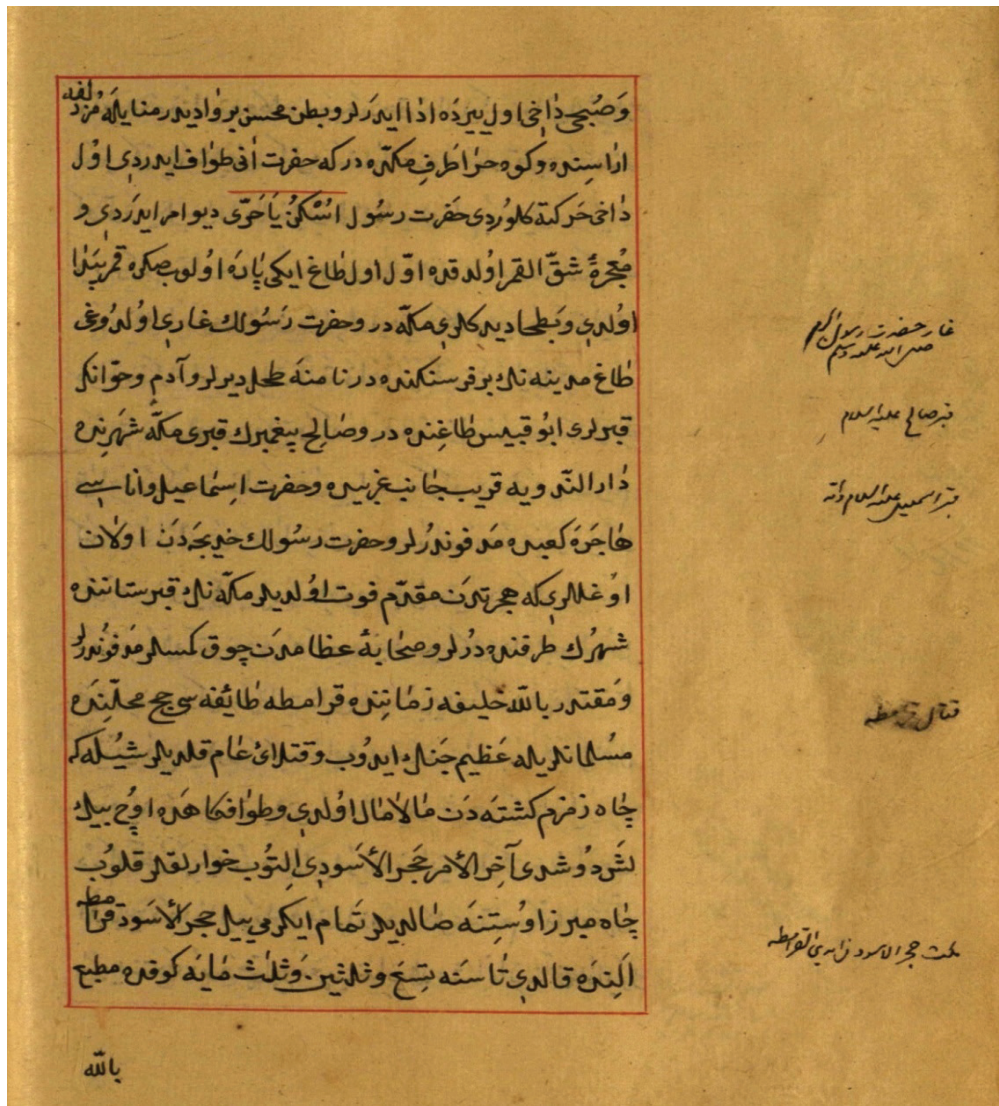 وَصُبحى دٰاخى اول ييرده ادا ايدرلر وبطن محسن بر واديدر منايله مُزدلفه
اراسنده وكوه حرا طرفِ مكّه‌ده در كه حضرت انى طواف ايدردى اول
دٰاخى حركته كلوردى حضرت رسُول اسْكُنْ يَا حَرّى ديو امر ايدردى و
معجزۀ شقّ القمر اولدقده اوّل اول طاغ ايكى پاره اولوب صكره قمر پيدا
اولدى وبطحا ديدكلرى مكّه در وحضرت رسُولك غارى اولدوغى
طاغ مدينه نك بر فرسنكنده در نامنه طحل ديرلر وآدم وحوّانك
قبرلرى ابُو قبيس طاغنده در وصالح پيغمبرك قبرى مكّه شهرنده
دار النّدويه قريب جانب غربيده وحضرت اسماعيل واناسى
هاجره كعبده مدفوندرلر وحضرت رسُولك خديجه‌دن اولان
اوغللرى كه هجرتدن مقدّم فوت اولديلر مكّه نك قبرستاننده
شهرك طرفنده درلر وصحابۀ عظامدن چوق كمسلر مدفوندرلر
ومقتدر بالله خليفه زماننده قرامطه طائفه سى حج محلّنده
مسلمانلريله عظيم جنك ايدوب وقتلائ عام قلديلر شيُله كه
چاه زمزم كشته‌دن مالامال اولدى وطوافكاهده اوچ بيك
لش دوشدى آخر الأمر حجر الأسودى التوب خوارلقلر قلوب
چاه ميرز اوستنه صالديلر تمام ايكرمى ييل حجر الأسود قرامطه
الِنده قالدى تاسنه تسع وثلثين وثلث مايه كوفده مطيع
بالله
غار حضرت رسول اكرم
صلى الله عليه وسلم
قبر صالح عليه السلام
قبر اسمعيل عليه السلام وانه
قتال قرامطه
مكث حجر الاسود فى ايدى القرامطه